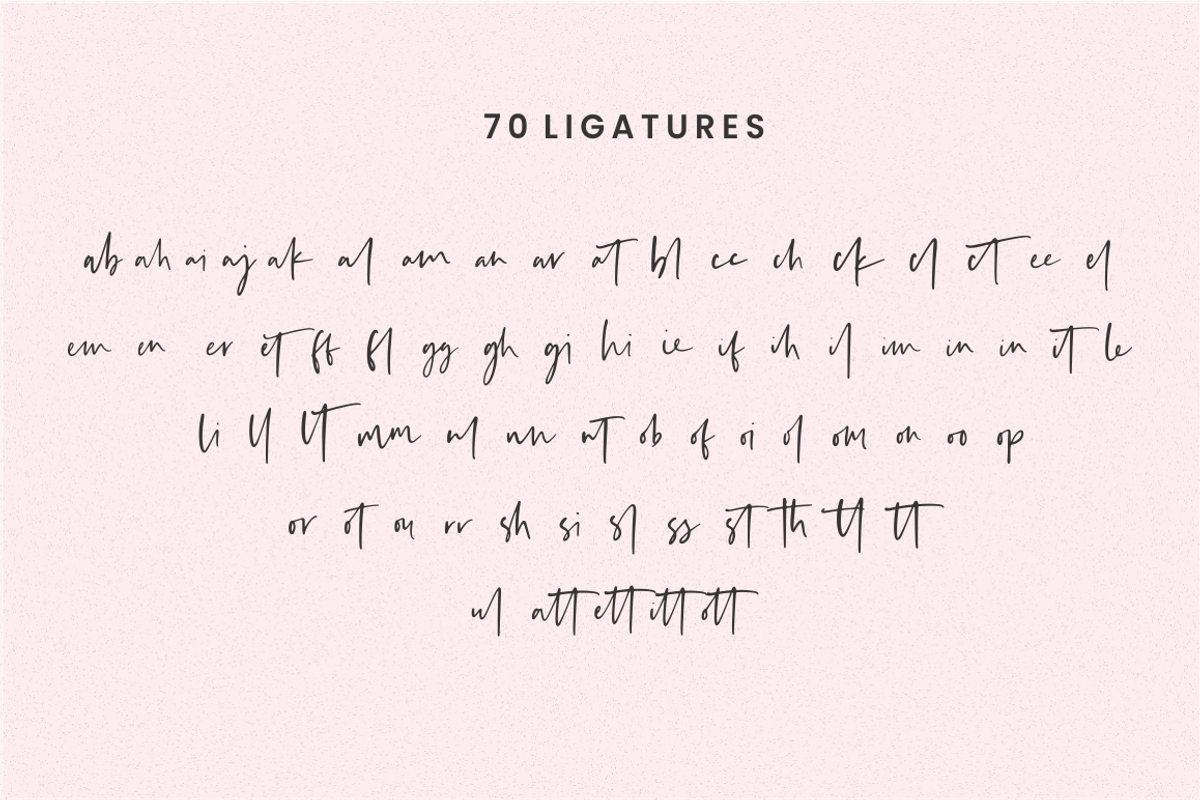 70 LIGATURES
ab ah ai aj ak al am an ar at bl cc ch ck cl ct ee el
em en er et ff fl gg gh gi hi ie if ih il im in in it le
li ll lt mm nl nn nt ob of oi ol om on oo op
or ot ou rr sh si sl ss st th tl tt
ul att ett itt ott